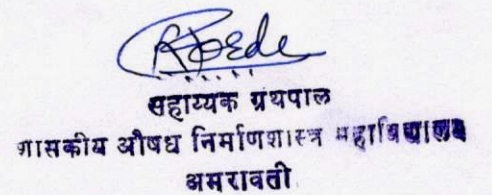 सहाय्यक ग्रंथपाल
शासकीय औषध निर्माणशास्त्र महाविद्यालय
अमरावती